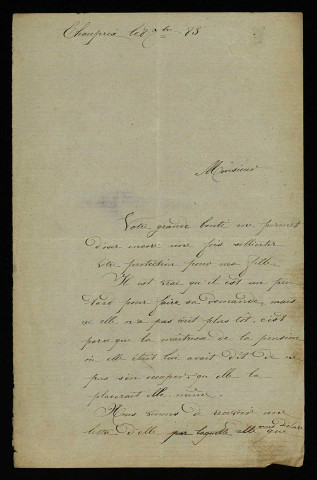 le 8 7bre 88
Monsieur
Votre grande bonté me permet
d'oser encore une fois solliciter
votre protection pour ma fille.
Il est vrai qu'il est un peu
tard pour faire sa demande, mais
si elle n'a pas écrit plus tot, c'est
parce que la maitresse de la pension
où elle était lui avait dit de ne
pas s'en occuper, qu'elle la
placerait elle même.
Nous venons de recevoir une
lettre d'elle par laquelle elle nous que